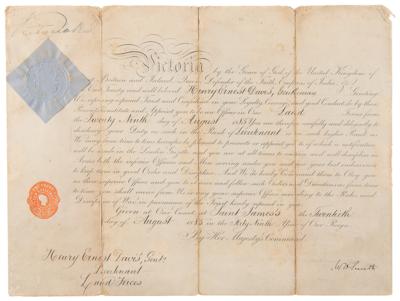 Victoria
by the Grace of God of the United Kingdom of
Britain and Ireland, Queen, Defender of the Faith, Empress of India, &c.
To Our Trusty and well beloved Henry Ernest Davis, Gentleman Greeting.
We reposing especial Trust and Confidence in your Loyalty, Courage, and good Conduct, do by these
Presents Constitute and Appoint you to be an Officer in Our Land Forces from
the Twenty Ninth day of August 1885 You are therefore carefully and diligently to
discharge your Duty as such in the Rank of Lieutenant or in such higher Rank as
We may from time to time hereafter be pleased to promote or appoint you to of which a notification
will be made in the London Gazette and you are at all times to exercise and well discipline in
Arms both the inferior Officers and Men serving under you and use your best endeavours
to keep them in good Order and Discipline. And We do hereby Command them to Obey you
as their superior Officer and you to observe and follow such Orders and Directions as from time
to time you shall receive from Us or any your superior Officer according to the Rules and
Discipline of War in pursuance of the Trust hereby reposed in you.
Given at Our Court, at Saint James's the Twentieth
day of August 1885 in the Forty Ninth Year of Our Reign.
By Her Majesty's Command
W H Smith
Henry Ernest Davis, Gent.
Lieutenant
Land Forces